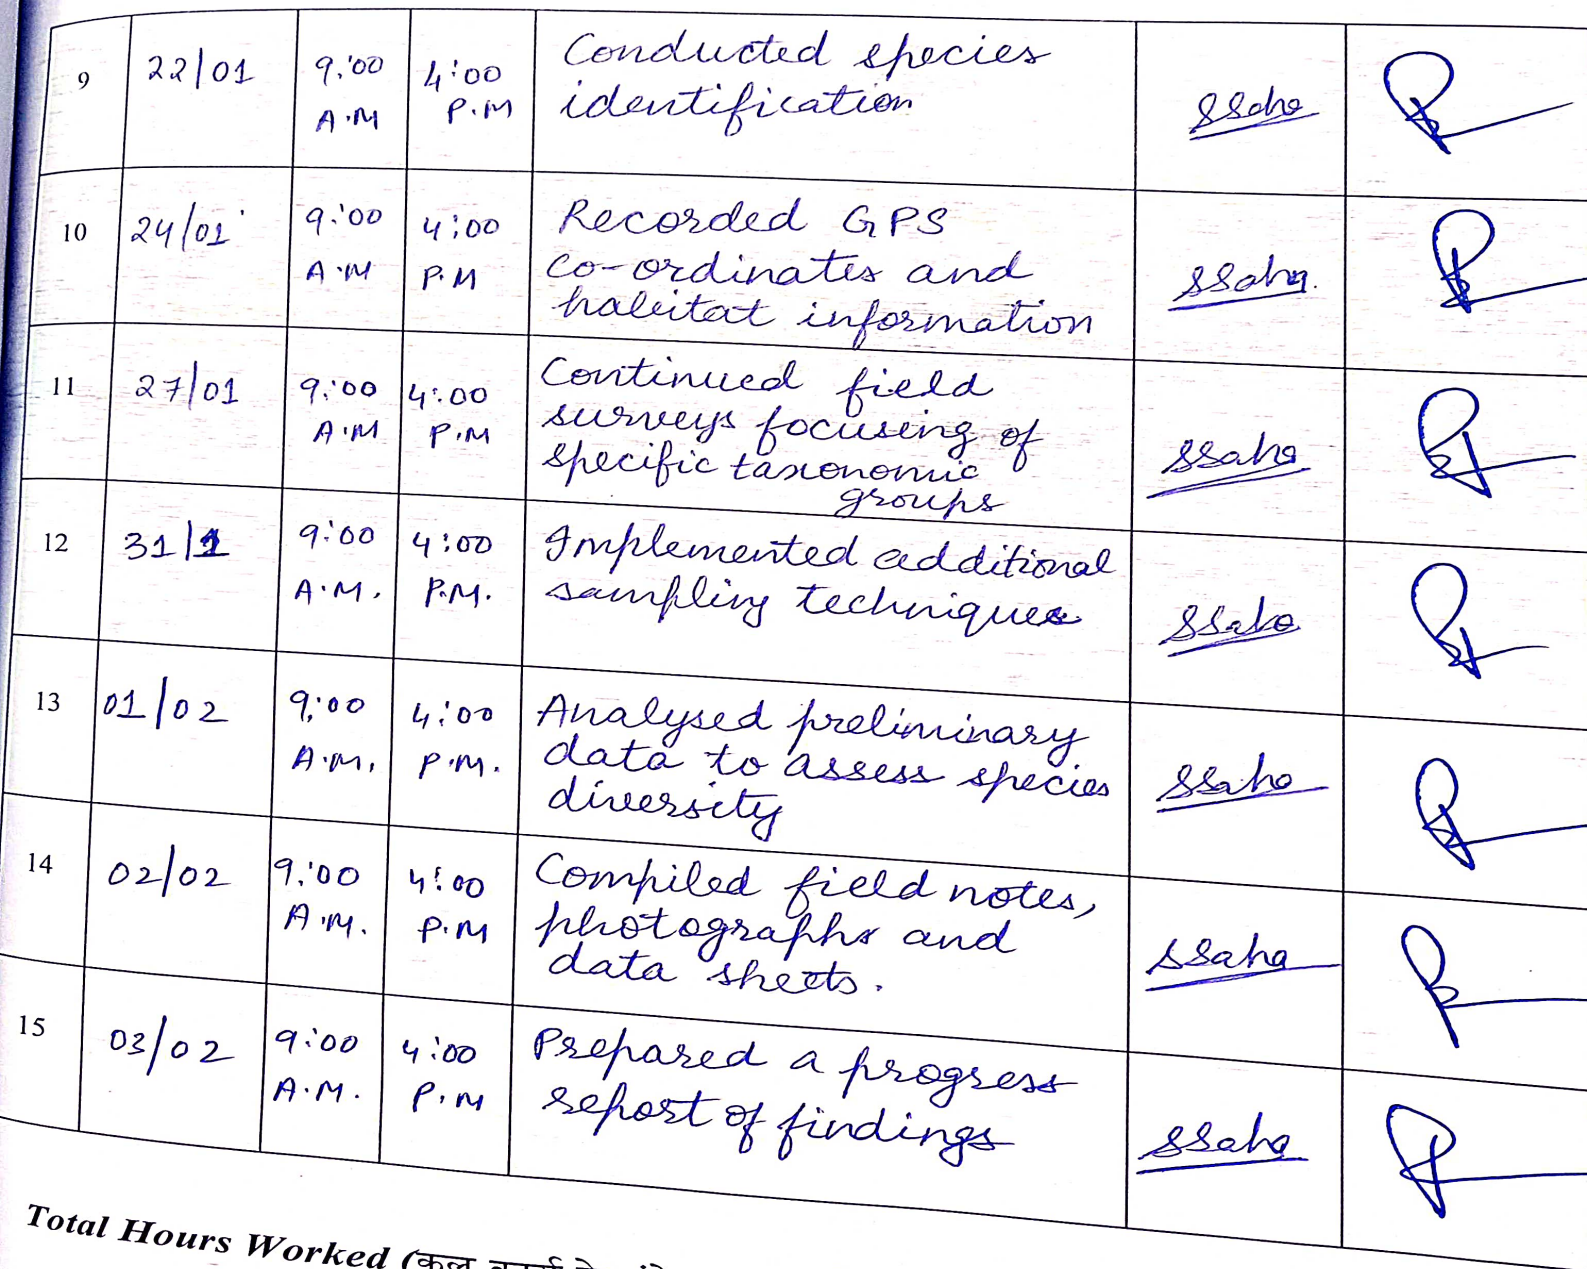 9 22/01 9:00 A.M 4:00 P.M Conducted species
identification
ssaha
10 24/01 9:00 A.M 4:00 P.M Recorded GPS
co-ordinates and
habitat information
ssaha.
11 27/01 9:00 A.M 4:00 P.M Continued field
surveys focusing of
specific taxonomic
groups
ssaha
12 31/1 9:00 A.M. 4:00 P.M. Implemented additional
sampling techniques
ssaha
13 01/02 9:00 A.M. 4:00 P.M. Analysed preliminary
data to assess species
diversity
ssaha
14 02/02 9:00 A.M. 4:00 P.M Compiled field notes,
photographs and
data sheets.
ssaha
15 03/02 9:00 A.M. 4:00 P.M Prepared a progress
report of findings
ssaha
Total Hours Worked (कुल